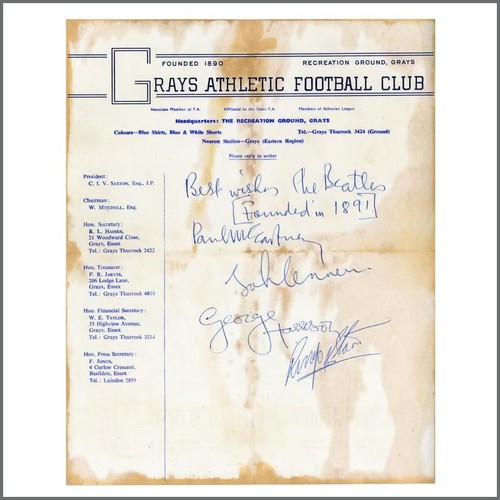 FOUNDED 1890
RECREATION GROUND, GRAYS
GRAYS ATHLETIC FOOTBALL CLUB
Associate Member of F.A. Affiliated to the Essex F.A. Members of Athenian League
Headquarters: THE RECREATION GROUND, GRAYS
Colours—Blue Shirts, Blue & White Shorts Tel.—Grays Thurrock 3424 (Ground)
Nearest Station—Grays (Eastern Region)
Please reply to writer
President:
C. I. V. SAXTON, Esq., J.P.
Chairman:
W. MITCHELL, Esq.
Hon. Secretary:
R. L. HAINER,
21 Woodward Close,
Grays, Essex
Tel.: Grays Thurrock 2422
Hon. Treasurer:
F. R. JARVIS,
206 Lodge Lane,
Grays, Essex
Tel.: Grays Thurrock 4816
Hon. Financial Secretary:
W. E. TAYLOR,
35 Highview Avenue,
Grays, Essex
Tel.: Grays Thurrock 3214
Hon. Press Secretary:
F. JONES,
4 Curlew Crescent,
Basildon, Essex
Tel.: Laindon 2859
Best wishes The Beatles
[Founded in 1891]
Paul McCartney
John Lennon
George Harrison
Ringo Starr